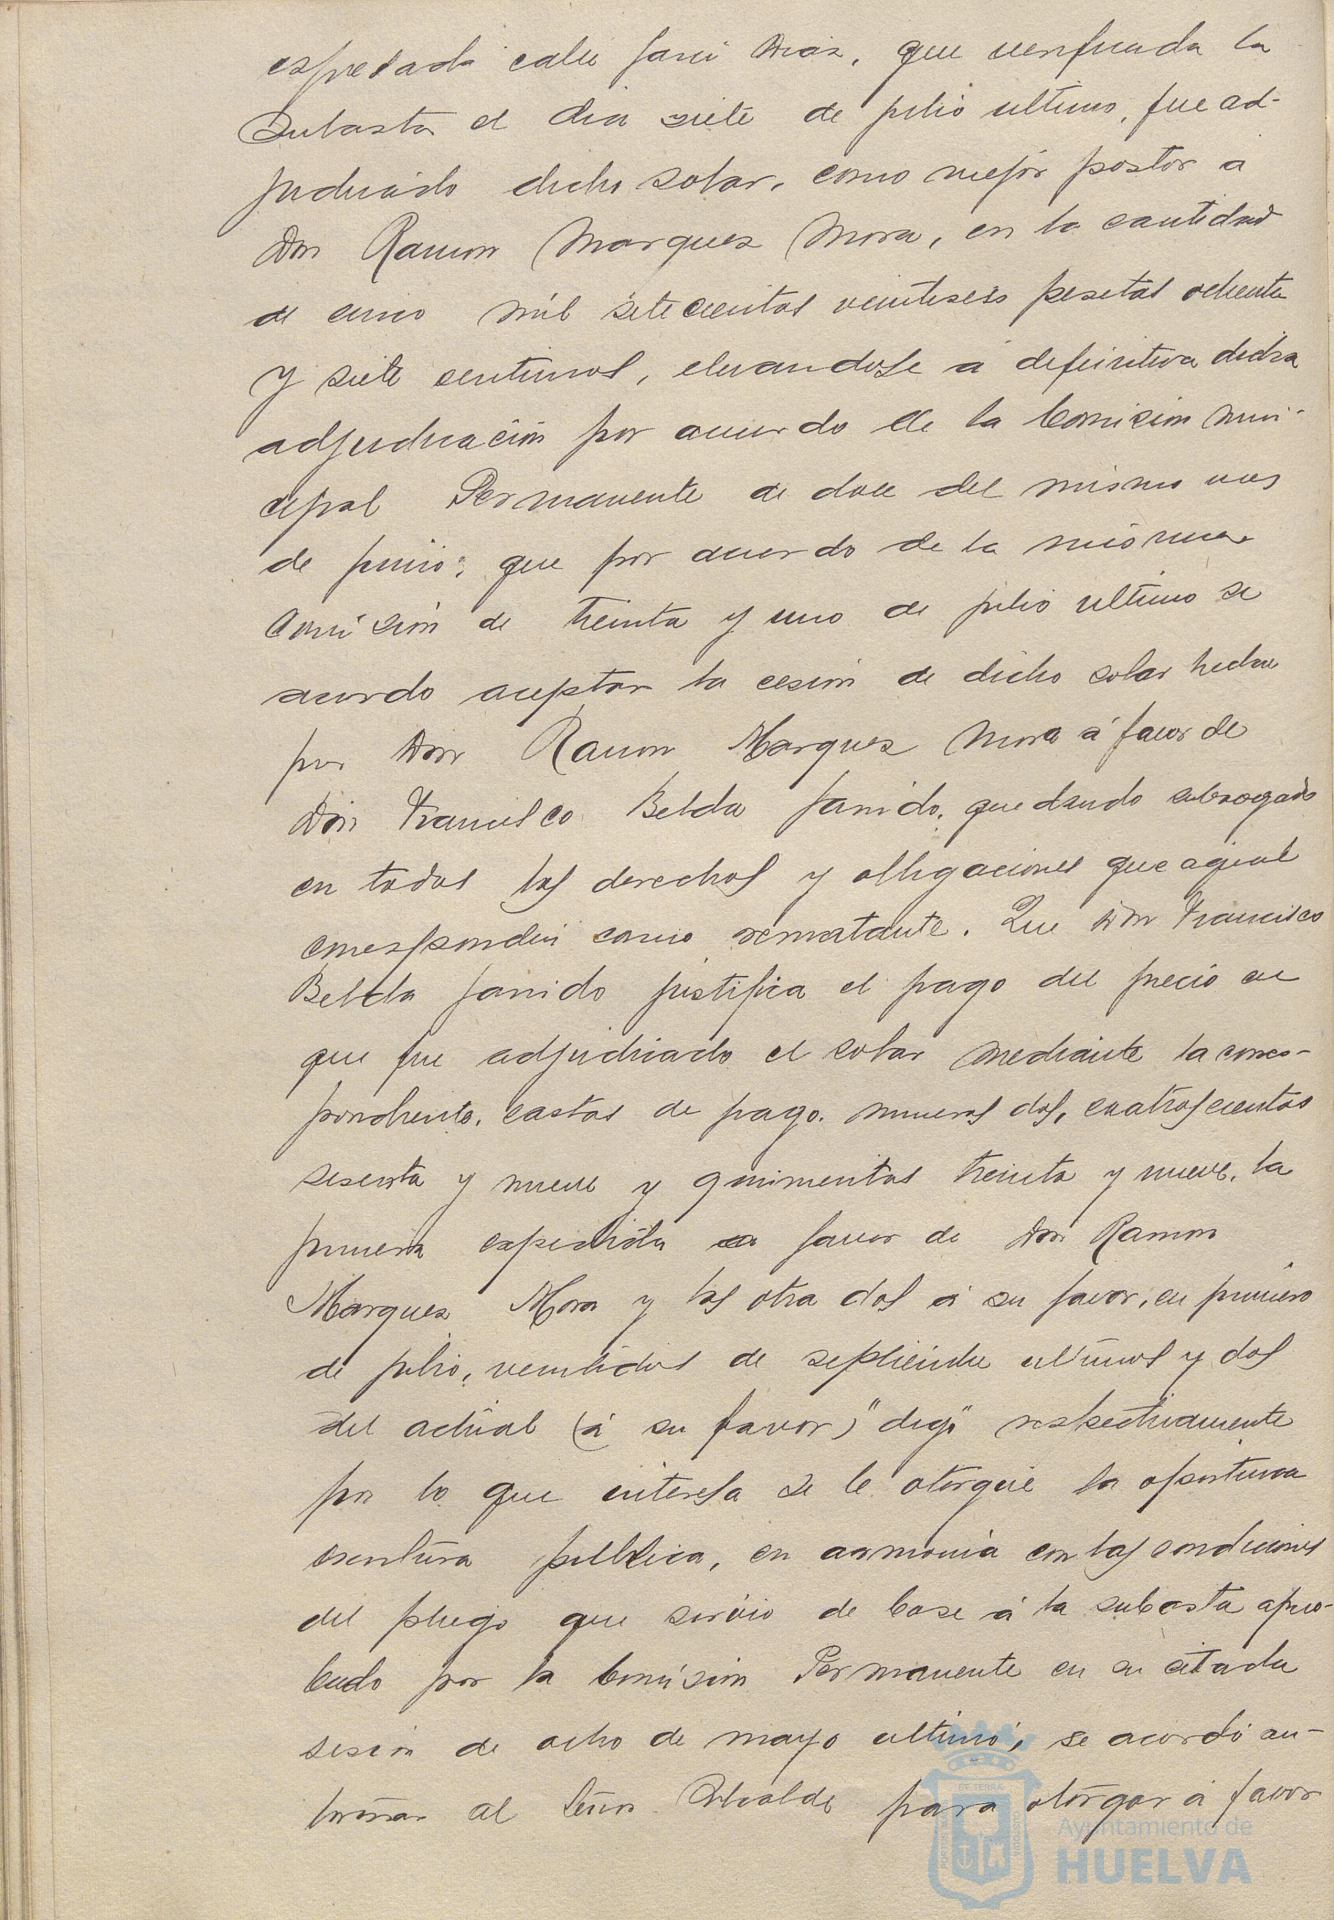 espresada calle Jani Diaz, que verificada la
Subasta el dia siete de julio ultimo, fue ad-
judicado dicho solar, como mejor postor a
Don Ramon Marquez Mora, en la cantidad
de cinco mil setecientas veintiseis pesetas ochenta
y siete sentimos, elevandose a definitiva dicha
adjudicación por acuerdo de la Comision muni-
cipal Permanente de doce del mismo mes
de junio; que por acuerdo de la misma
Comisión de treinta y uno de julio ultimo se
acordo aceptar la cesión de dicho solar hecha
por Don Ramon Marquez Mora á favor de
Don Francisco Belda Janido, quedando subrogado
en todos los derechos y obligaciones que aquel
corespondin como rematante. Que Don Francisco
Belda Janido justifica el pago del precio en
que fue adjudicado el solar mediante la corres-
pondiente, cartas de pago. numeros dos, cuatroscientos
sesenta y nueve y quinientos treinta y nueve, la
primera expedida a favor de Don Ramon
Marquez Mora y las otra dos á su favor, en primero
de julio, veintidos de septiembre ultimos y dos
del actual (á su favor) "digo" respectivamente
por lo que interesa se le otorgue la oportuna
escritura publica, en armonia con las condiciones
del pliego que sirvio de base á la subasta apro-
bado por la Comisión Permanente en su citada
sesion de ocho de mayo ultimo, se acordó au-
torizar al Señor Alcalde para otorgar á favor
Ayuntamiento de
HUELVA